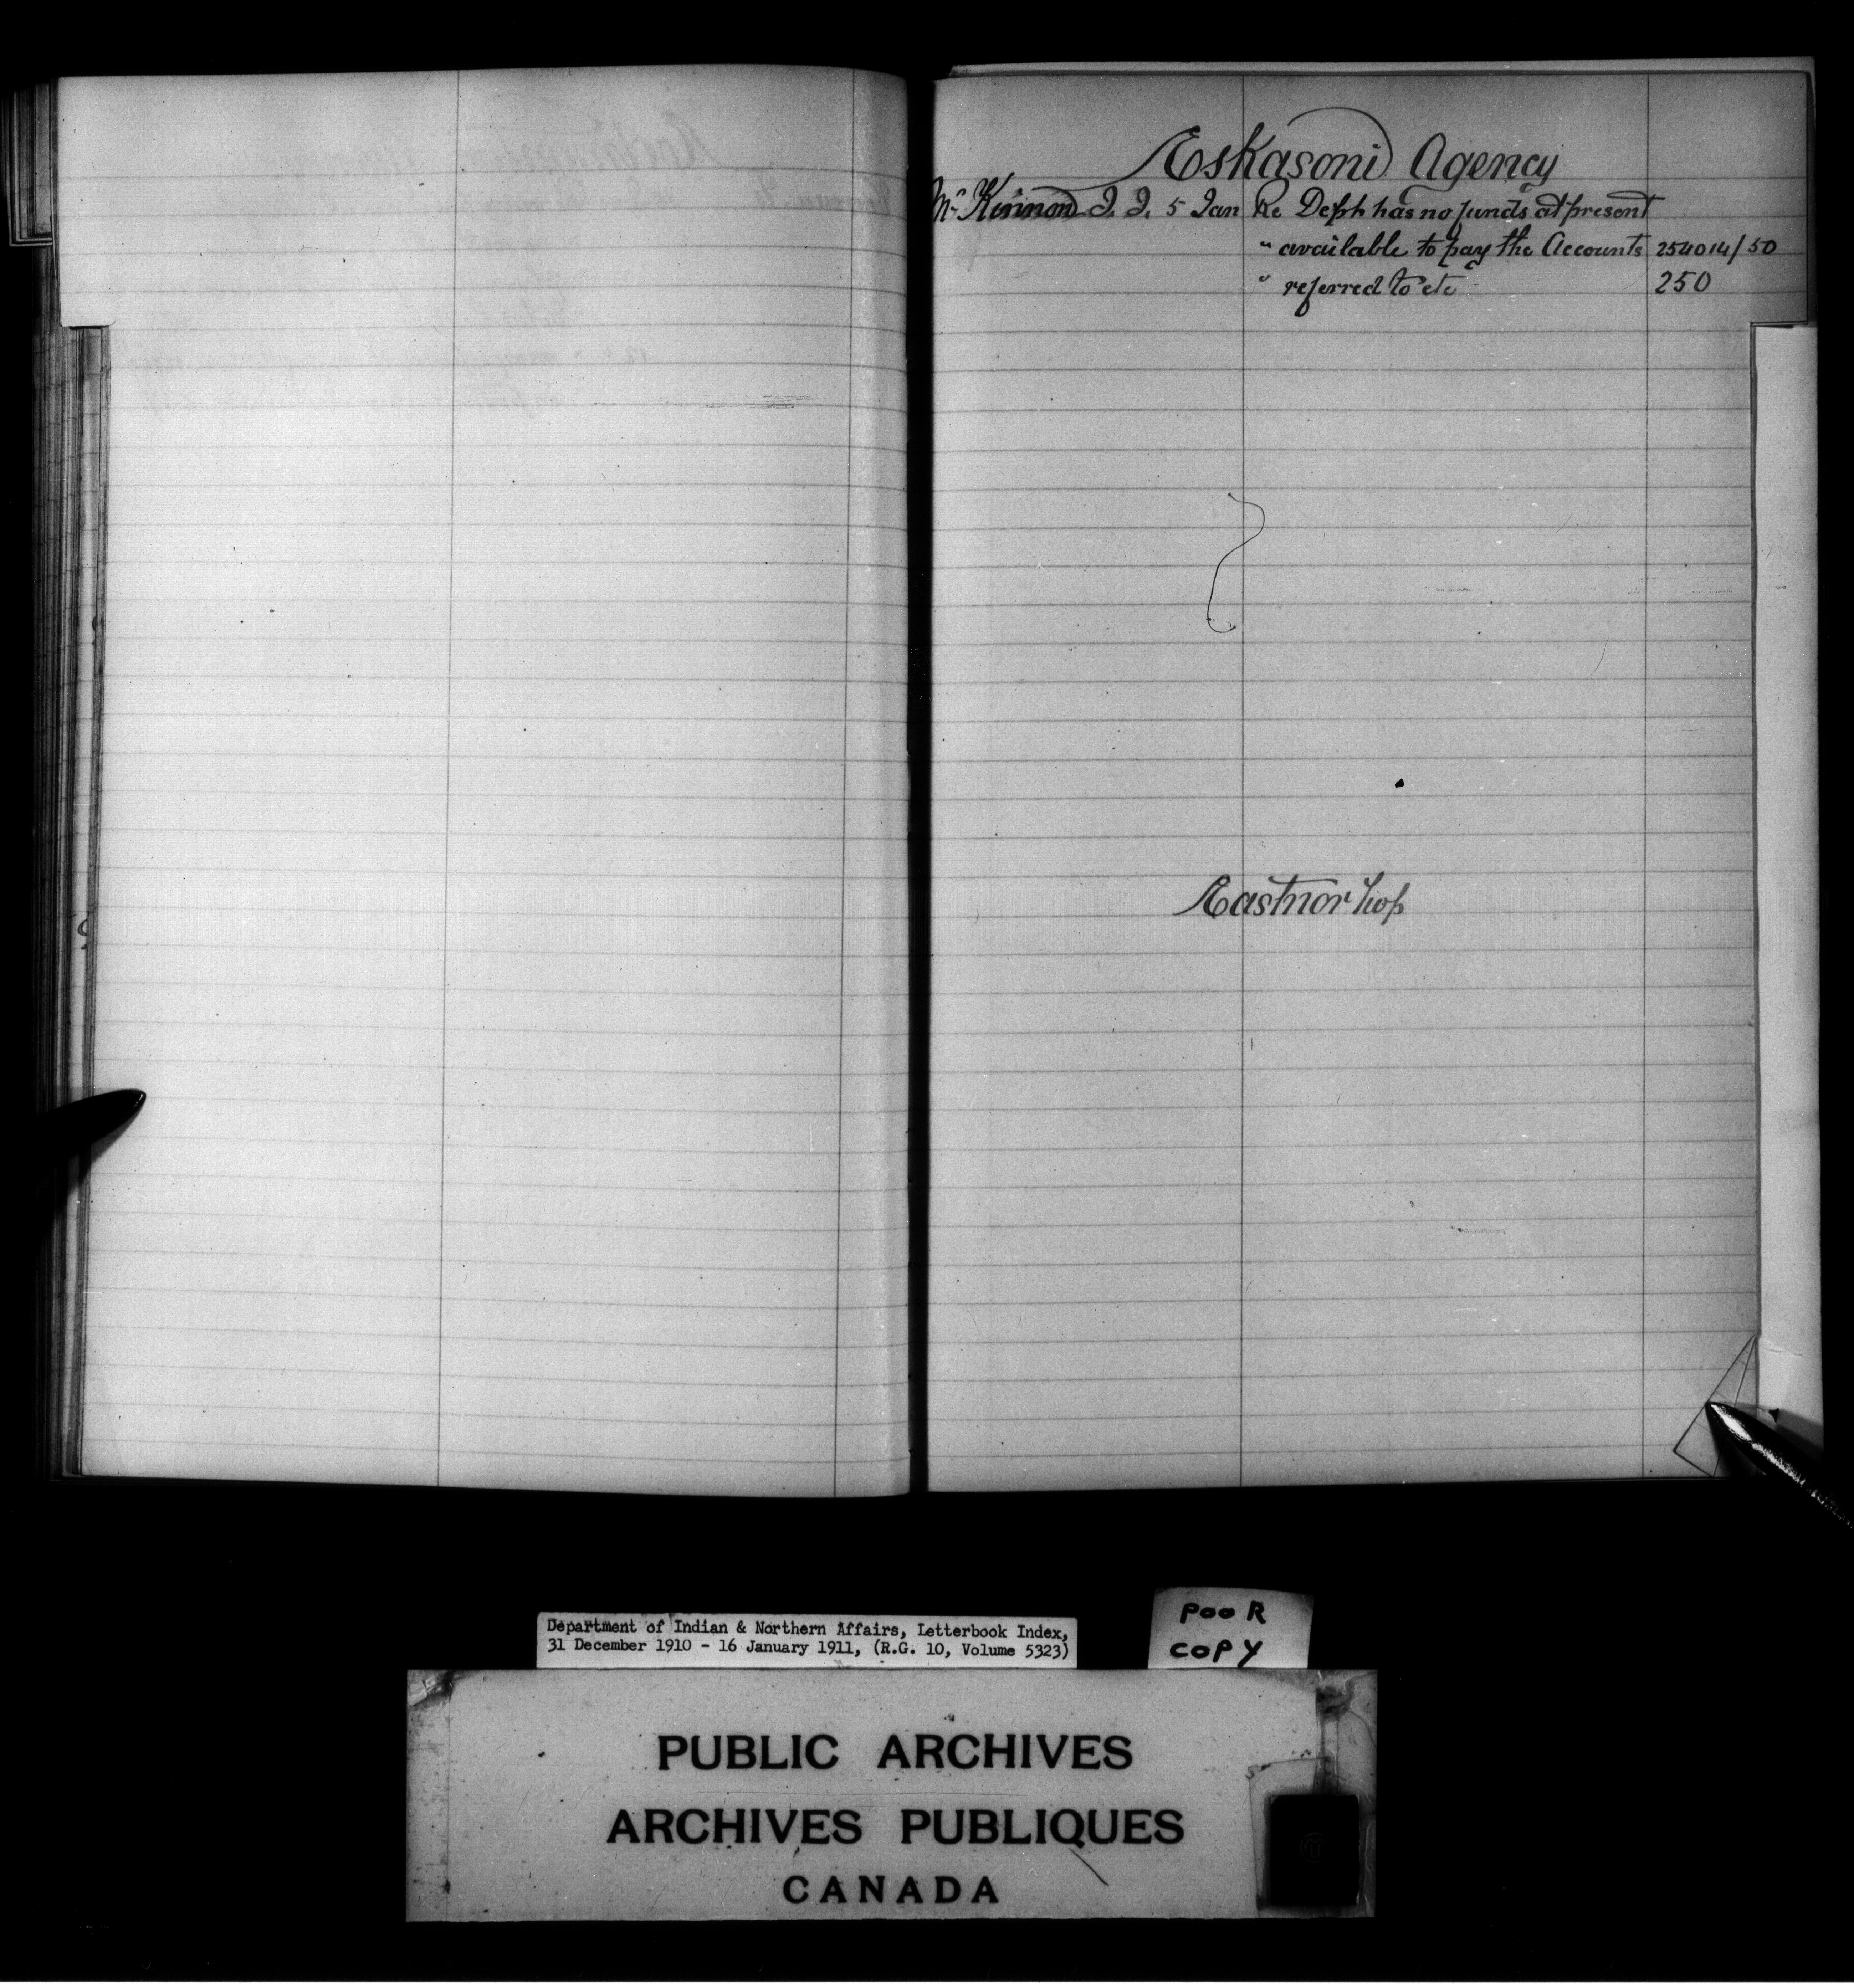 Eskasoni Agency
McKinnon J. J. 5 Jan Re Dept has no funds at present
" available to pay the Accounts 254014/50
" referred to etc 250
Eastnor Twp
Department of Indian & Northern Affairs, Letterbook Index,
31 December 1910 - 16 January 1911, (R.G. 10, Volume 5323)
POOR
COPY
PUBLIC ARCHIVES
ARCHIVES PUBLIQUES
CANADA